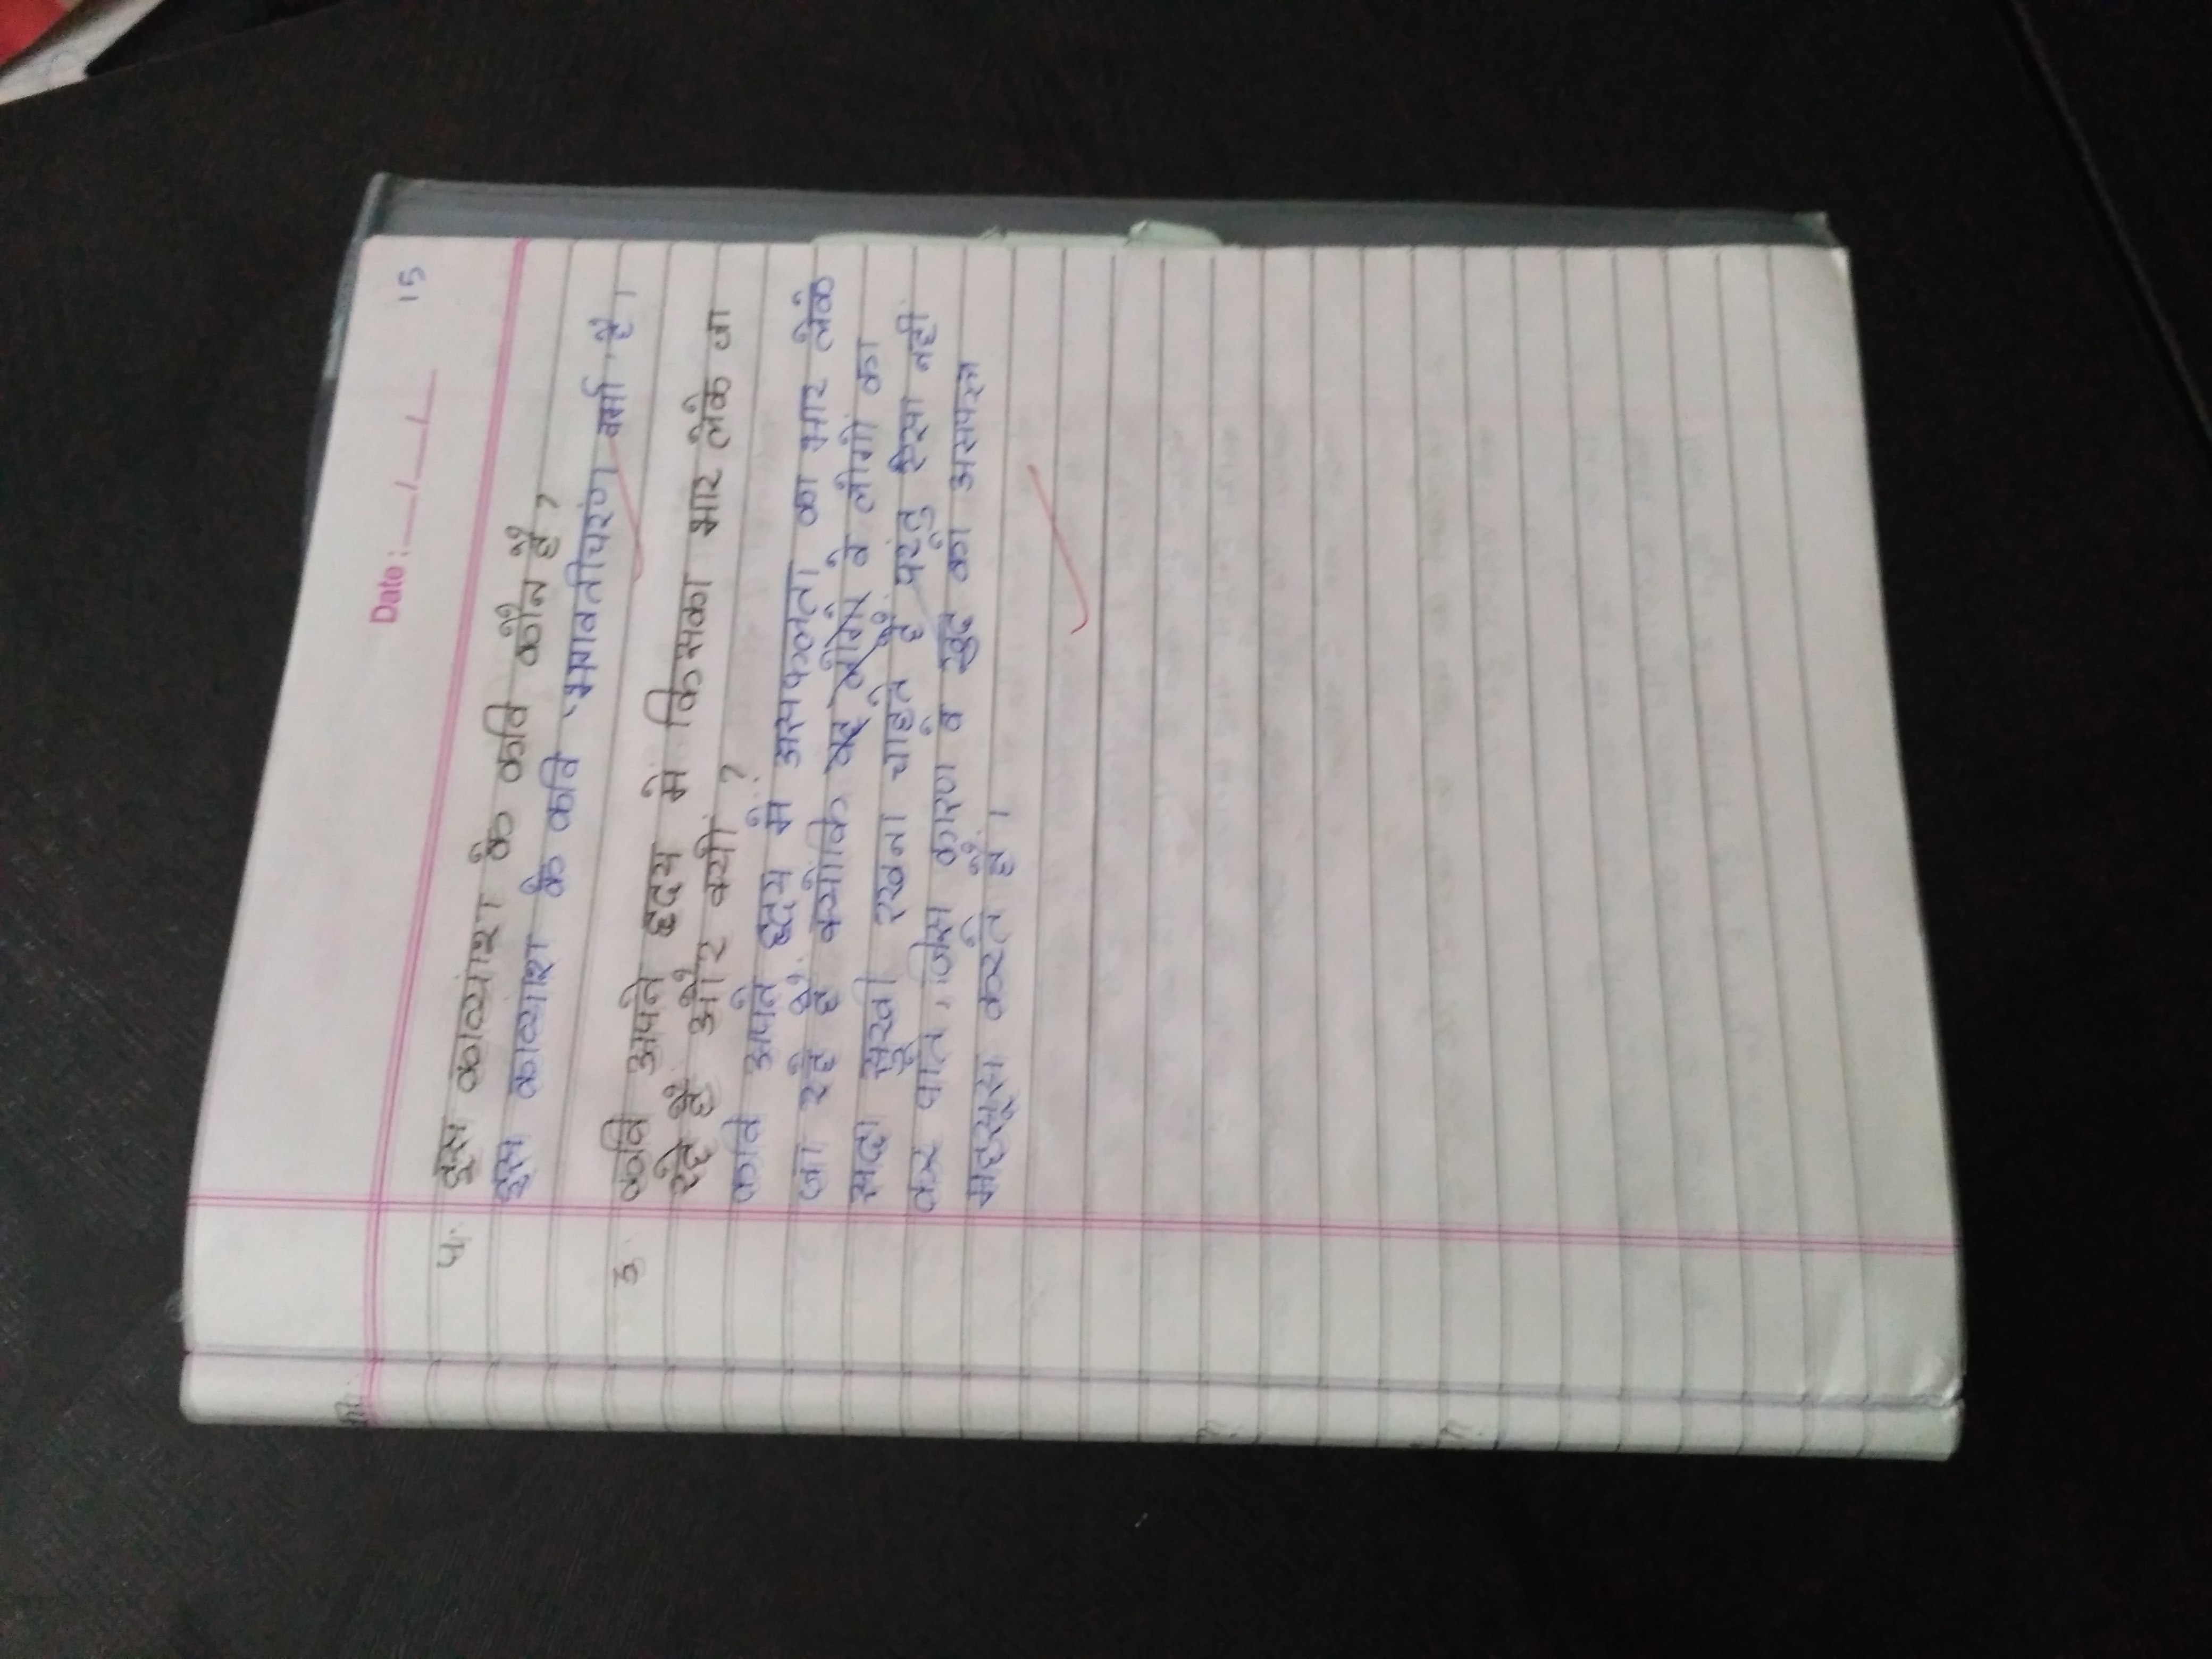 Date : __/__/__ 15
५. इस काव्यांश के कवि कौन है ?
इस काव्यांश के कवि 'भगवतीचरण वर्मा' है।
कवि अपने हृदय में किसका भार लेके जा
रहे हैं और क्यों ?
कवि अपने हृदय में असफलता का भार लेके
जा रहे हैं क्योंकि वे लोगों का
सदा सुखी रखना चाहते हैं परंतु ऐसा नहीं
कर पाते, जिस कारण वे खुद को असफल
महसूस करते हैं।